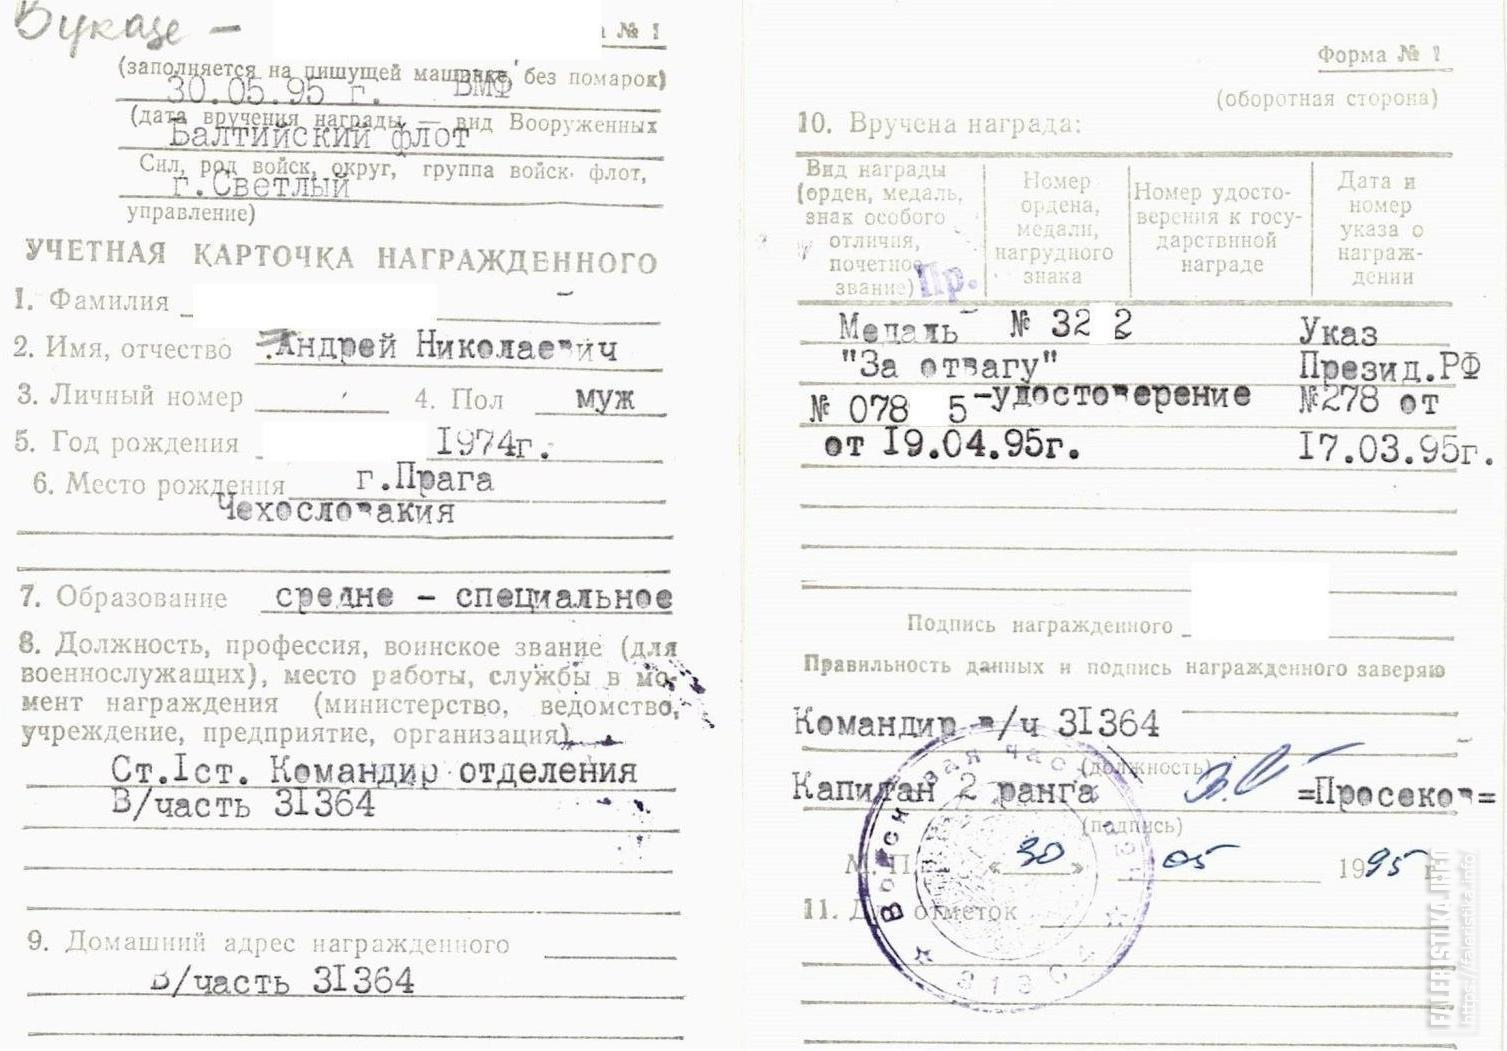 Вуказе –
№ 1
(заполняется на пишущей машинке, без помарок)
30.05.95 г. ВМФ
(дата вручения награды — вид Вооруженных
Балтийский флот
Сил, род войск, округ, группа войск, флот,
г.Светлый
управление)
УЧЕТНАЯ КАРТОЧКА НАГРАЖДЕННОГО
1. Фамилия
2. Имя, отчество Андрей Николаевич
3. Личный номер 4. Пол муж
5. Год рождения 1974г.
6. Место рождения г.Прага
Чехословакия
7. Образование средне – специальное
8. Должность, профессия, воинское звание (для
военнослужащих), место работы, службы в мо-
мент награждения (министерство, ведомство,
учреждение, предприятие, организация)
Ст.Iст. Командир отделения
В/часть 3I364
9. Домашний адрес награжденного
В/часть 3I364
Форма № 1
(оборотная сторона)
10. Вручена награда:
Вид награды (орден, медаль, знак особого отличия, почетное звание)
Номер ордена, медали, нагрудного знака
Номер удосто-верения к госу-дарствнной награде
Дата и номер указа о награж-дении
Пр.
Медаль № 32 2 Указ
"За отвагу" Презид.РФ
№ 078 5-удостоверение №278 от
от I9.04.95г. I7.03.95г.
Подпись награжденного
Правильность данных и подпись награжденного заверяю
Командир в/ч 3I364
(должность)
Капитан 2 ранга =Просеков=
(подпись)
М. П. «30» 05 1995 г.
11. Для отметок
Войсковая часть
FALERISTIKA.INFO
https://faleristika.info